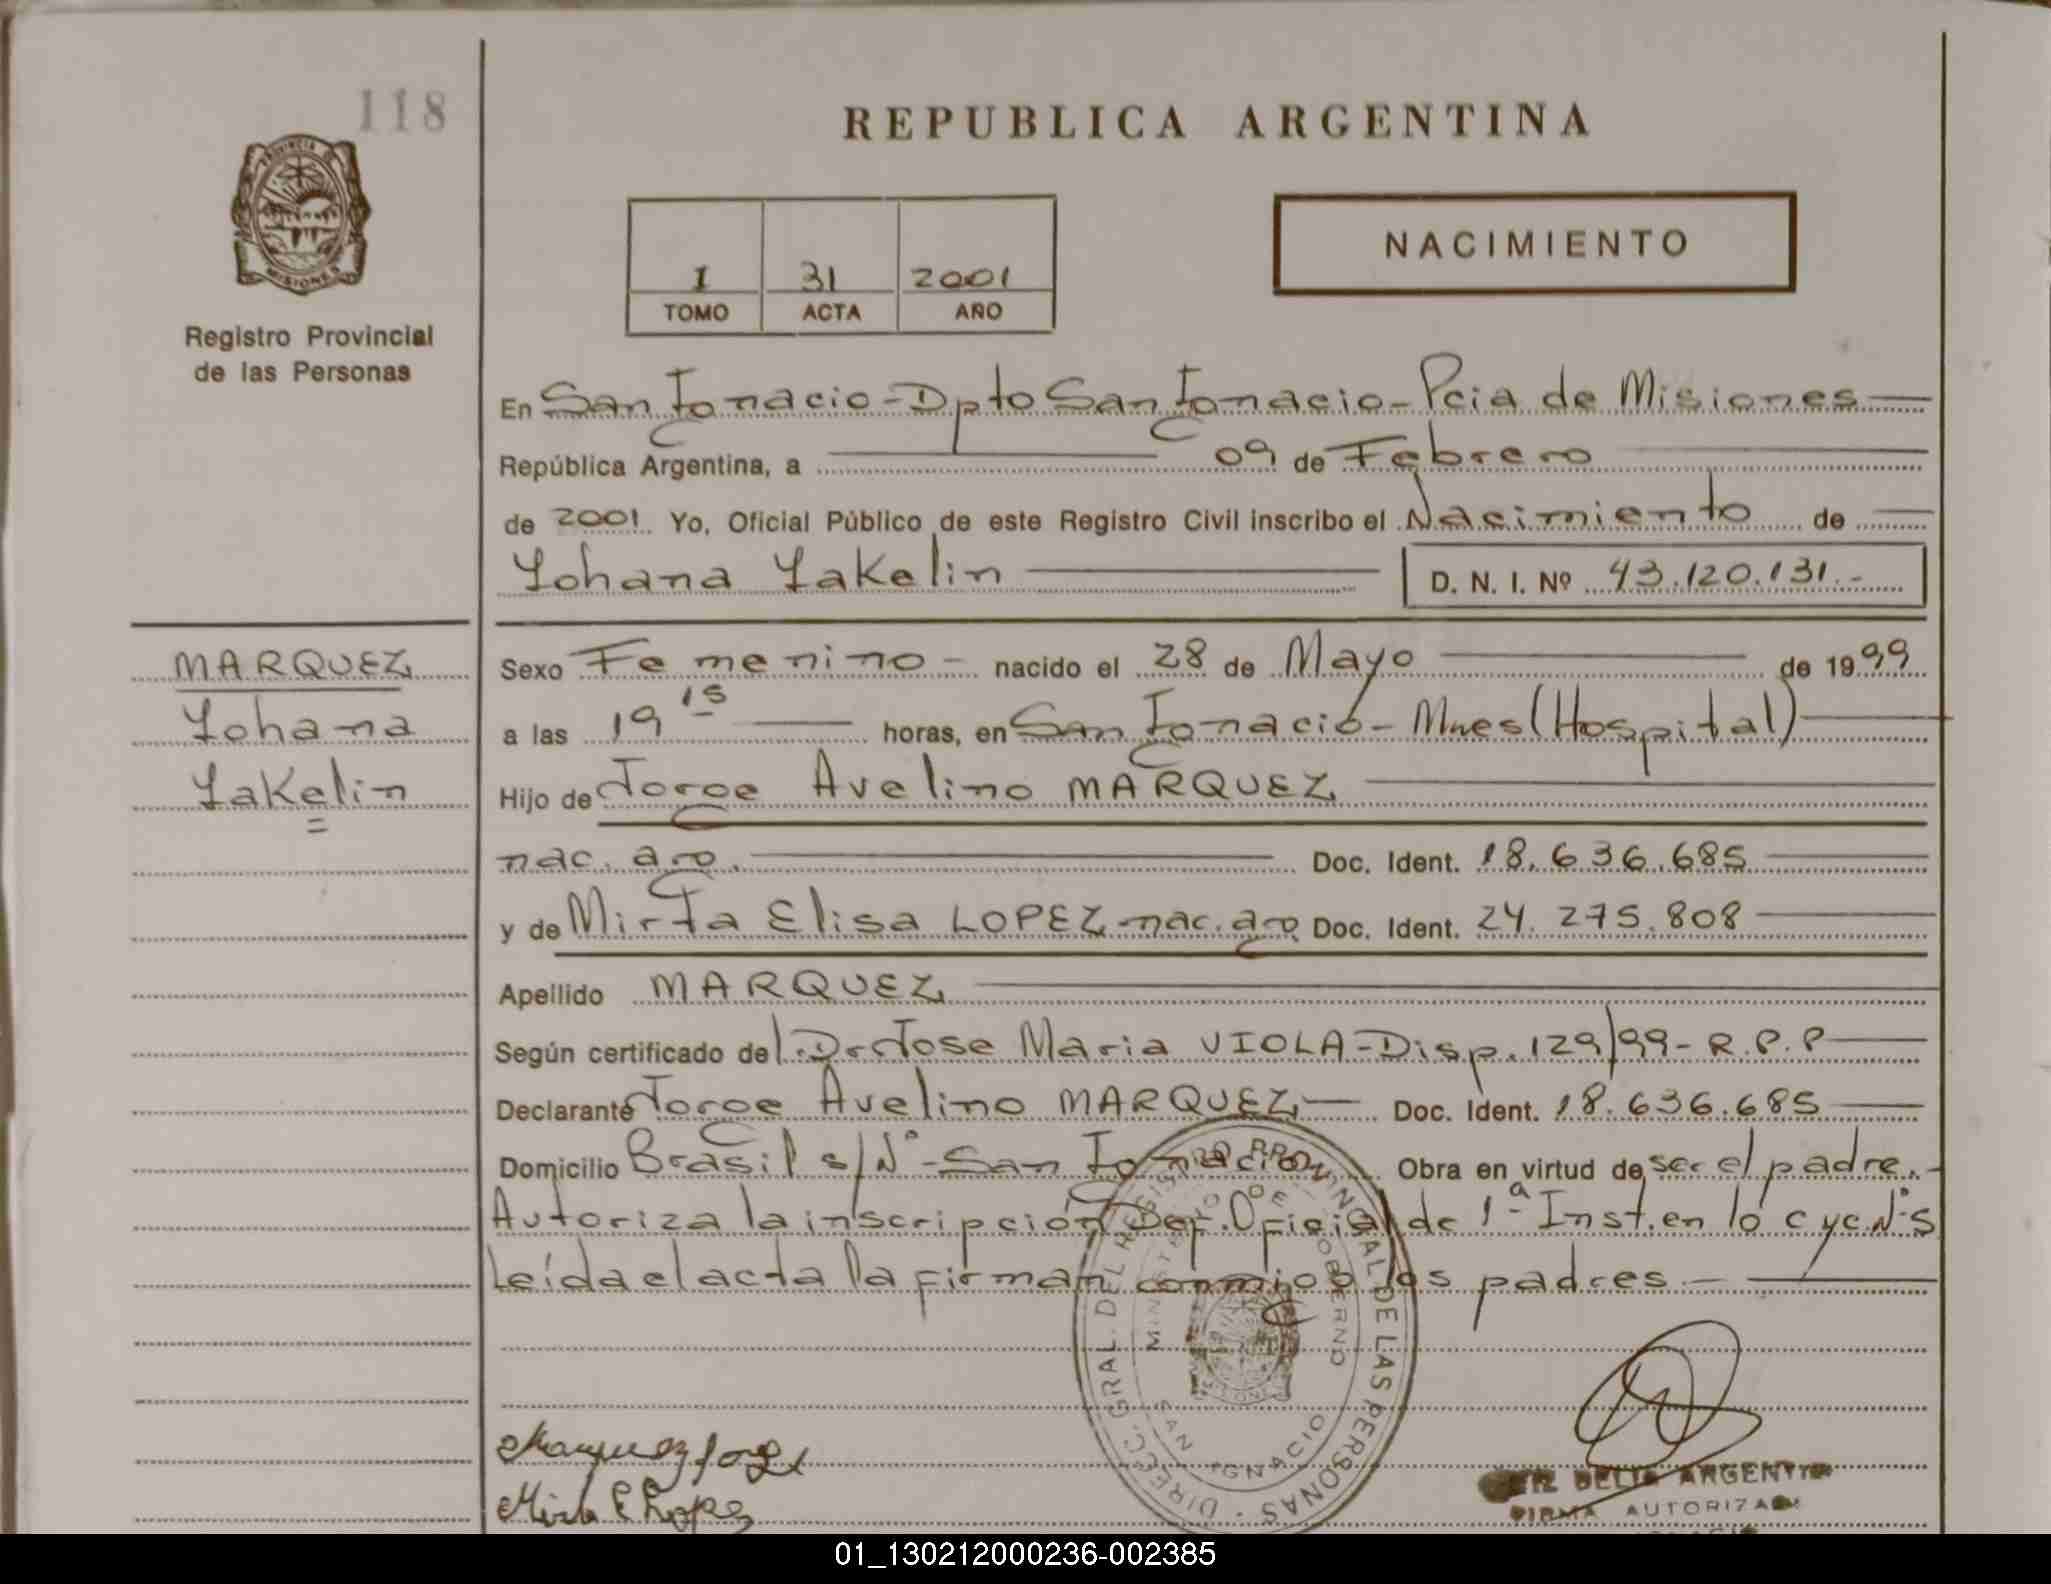 118
REPUBLICA ARGENTINA
PROVINCIA DE
MISIONES
Registro Provincial
de las Personas
I 31 2001
TOMO ACTA AÑO
NACIMIENTO
En San Ignacio - Dpto San Ignacio - Pcia de Misiones
República Argentina, a 09 de Febrero
de 2001. Yo, Oficial Público de este Registro Civil inscribo el Nacimiento de
Yohana Yakelin D. N. I. Nº 43.120.131.-
MARQUEZ
Yohana
Yakelin
=
Sexo Femenino - nacido el 28 de Mayo de 1999
a las 19 15 horas, en San Ignacio - Mnes (Hospital)
Hijo de Jorge Avelino MARQUEZ
nac. arg. Doc. Ident. 18.636.685
y de Mirta Elisa LOPEZ nac. arg. Doc. Ident. 24.275.808
Apellido MARQUEZ
Según certificado del Dr Jose Maria VIOLA - Disp. 129/99 - R.P.P
Declarante Jorge Avelino MARQUEZ - Doc. Ident. 18.636.685
Domicilio Brasil s/Nº - San Ignacio Obra en virtud de ser el padre.-
Autoriza la inscripción Def. Oficial de 1ª Inst. en lo C y C. Nº 5
Leída el acta la firman conmigo los padres.-
DIRECC. GRAL. DEL REGISTRO PROVINCIAL DE LAS PERSONAS
MINISTERIO DE GOBIERNO
SAN IGNACIO
Marquez Jorge
Mirta E Lopez
DELIA ARGENTINA
FIRMA AUTORIZADA
01_130212000236-002385